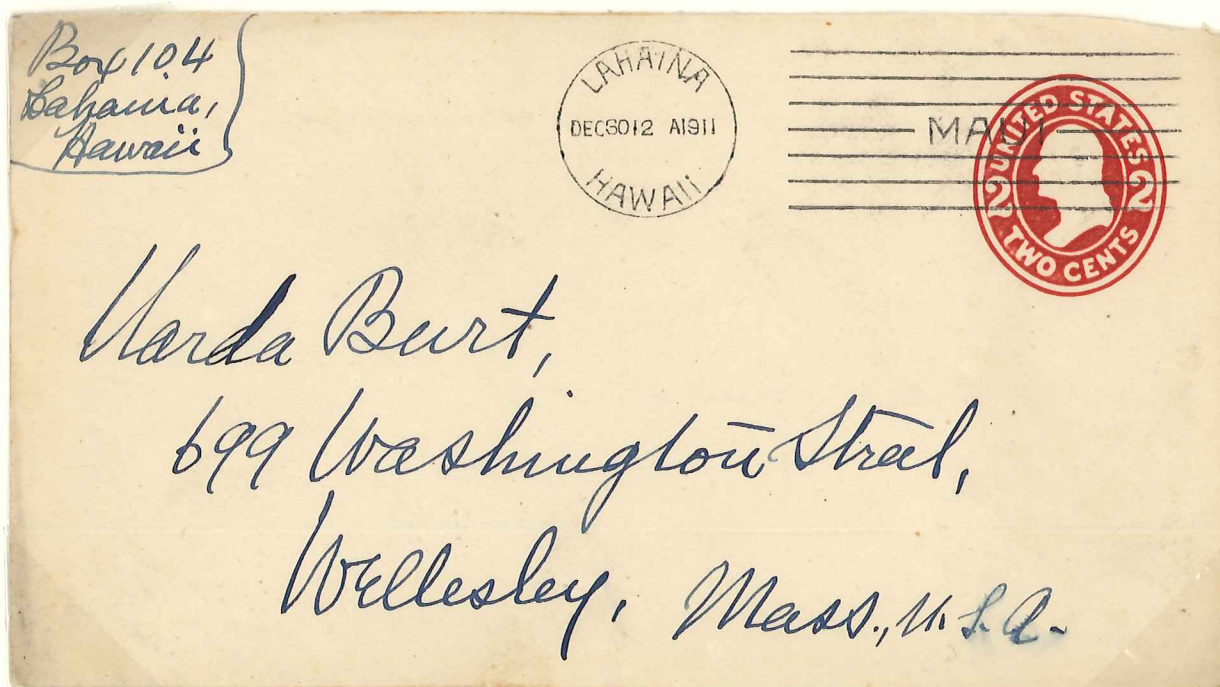 Box 104
Lahaina,
Hawaii
LAHAINA
DEC 30 12 A 1911
HAWAII
MAUI
UNITED STATES
2 2
TWO CENTS
Varda Burt,
699 Washington Street,
Wellesley, Mass., U.S.A.